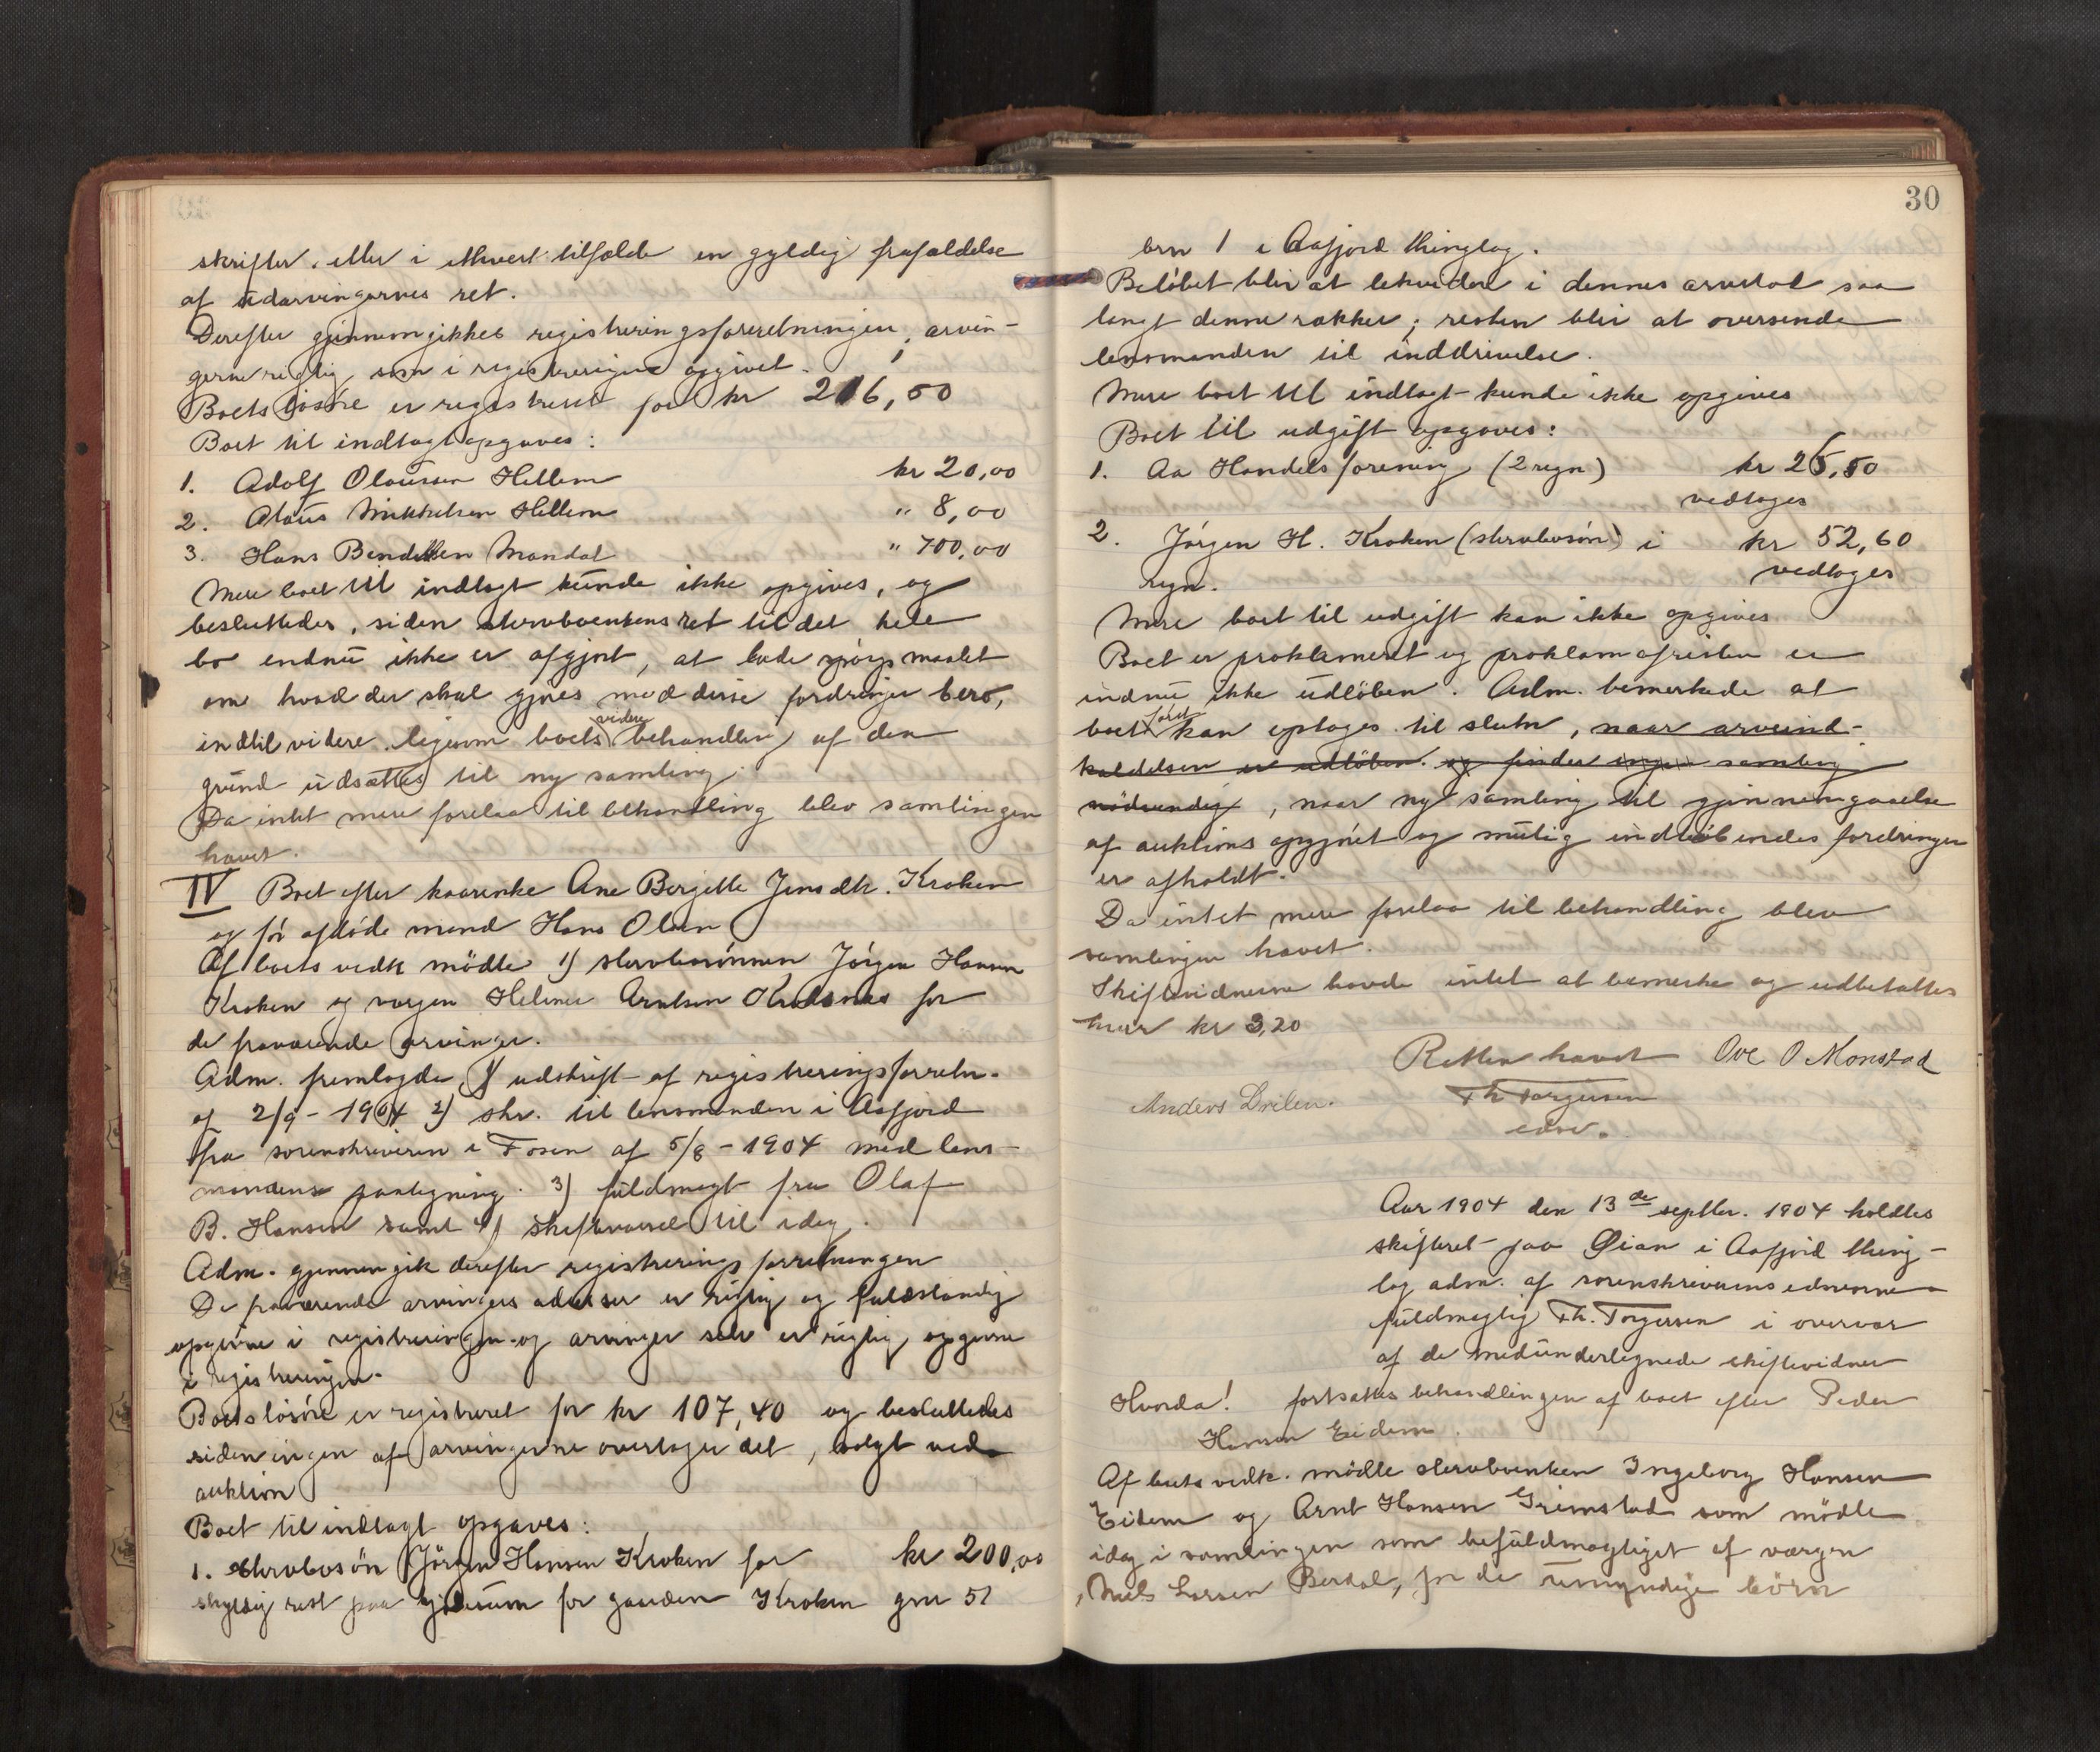 skrifter eller i ethvert tilfælde en gyldig frafaldelse
af udarvingernes ret.
Derefter gjennemgikkes registreringsforretningen, arvin-
gerne rigtig som i registreringen opgivet.
Boets løsøre er registreret for kr 216,50
Boet til indtægt opgaves:
1. Adolf Olausen Hellem kr 20,00
2. Olaus Mikkelsen Hellem " 8,00
3. Hans Bendiksen Mandal " 700,00
Mere boet til indtægt kunde ikke opgives, og
besluttedes, siden stervboenkens ret til det hele
bo endnu ikke er afgjort, at lade spørgsmaalet
om hvad der skal gjøres med disse fordringer bero,
indtil videre ligesom boets videre behandling af den
grund udsættes til ny samling.
Da intet mere forelaa til behandling blev samlingen
hævet.
IV Boet efter kaarenke Ane Bergette Jensdtr. Kroken
og før afdøde mand Hans Olsen
Af boets vedk mødte 1) stervbosønnen Jørgen Hansen
Kroken og værgen Helmer Arntsen for
de fraværende arvinger.
Adm. fremlagde 1) udskrift af registreringsforretn.
af 2/9 - 1904 2) skr. til lensmanden i Aafjord
fra sorenskriveren i Fosen af 5/8 - 1904 med lens-
mandens paategning. 3) fuldmagt fra Olaf
B. Hansen samt 4) skiftevarsel til idag.
Adm. gjennemgik derefter registreringsforretningen
De fraværende arvingers adresser er rigtig og fuldstændig
opgivne i registreringen og arvinger selv er rigtig opgivne
i registreringen.
Boets løsøre er registreret for kr 107,40 og besluttedes
siden ingen af arvingerne overtager det, solgt ved
auktion
Boet til indtægt opgaves:
1. Stervbosøn Jørgen Hansen Kroken for kr 200,00
skyldig rest paa kjøbesum for gaarden Kroken gnr 51
30
brn 1 i Aafjord thinglag.
Beløbet blir at likvidere i dennes arvelod saa
langt denne rækker; resten blir at oversende
lensmanden til inddrivelse.
Mere boet til indtægt kunde ikke opgives
Boet til udgift opgaves:
1. Aa Handelsforening (2 regn) kr 26,50
vedtages
2. Jørgen H. Kroken (stervbosøn) i kr 52,60
regn. vedtages
Mere boet til udgift kan ikke opgives
Boet er proklameret og proklamafristen er
endnu ikke udløben. Adm. bemerkede at
boet først kan optages til slutn, naar arveind-
kaldelsen er udløben og finder ingen samling
nødvendig, naar ny samling til gjennemgaaelse
af auktionsopgjøret og mulig indløbendes fordringer
er afholdt.
Da intet mere forelaa til behandling blev
samlingen hævet.
Skiftevidnerne havde intet at bemerke og udbetaltes
hver kr 3,20
Retten hævet Ove O Monstad
Anders Drilen. Th Torgersen
edsv.
Aar 1904 den 13de septbr. 1904 holdtes
skifteret paa Øian i Aafjord thing-
lag adm. af sorenskriverens edsvorne
fuldmægtig Th. Torgersen i overvær
af de medundertegnede skiftevidner
Hvorda! fortsattes behandlingen af boet efter Peder
Hansen Eidem.
Af boets vedk. mødte stervboenken Ingeborg Hansen
Eidem og Arnt Hansen Grimstad som mødte
idag i samlingen som befuldmægtiget af værgen
Nils Larsen Berdal, for de umyndige børn